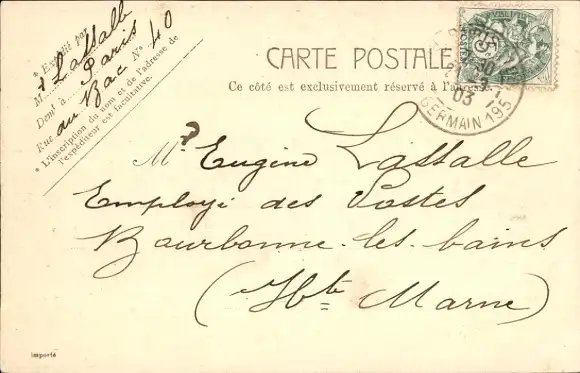 * Expédié par
M Lassalle
Demt à Paris
Rue du Bac No 40
* L'inscription du nom et de l'adresse de
l'expéditeur est facultative.
CARTE POSTALE
Ce côté est exclusivement réservé à l'adresse
10
03
GERMAIN 195
?
Mr Eugène Lassalle
Employé des Postes
Bourbonne-les-bains
(Hte Marne)
importé